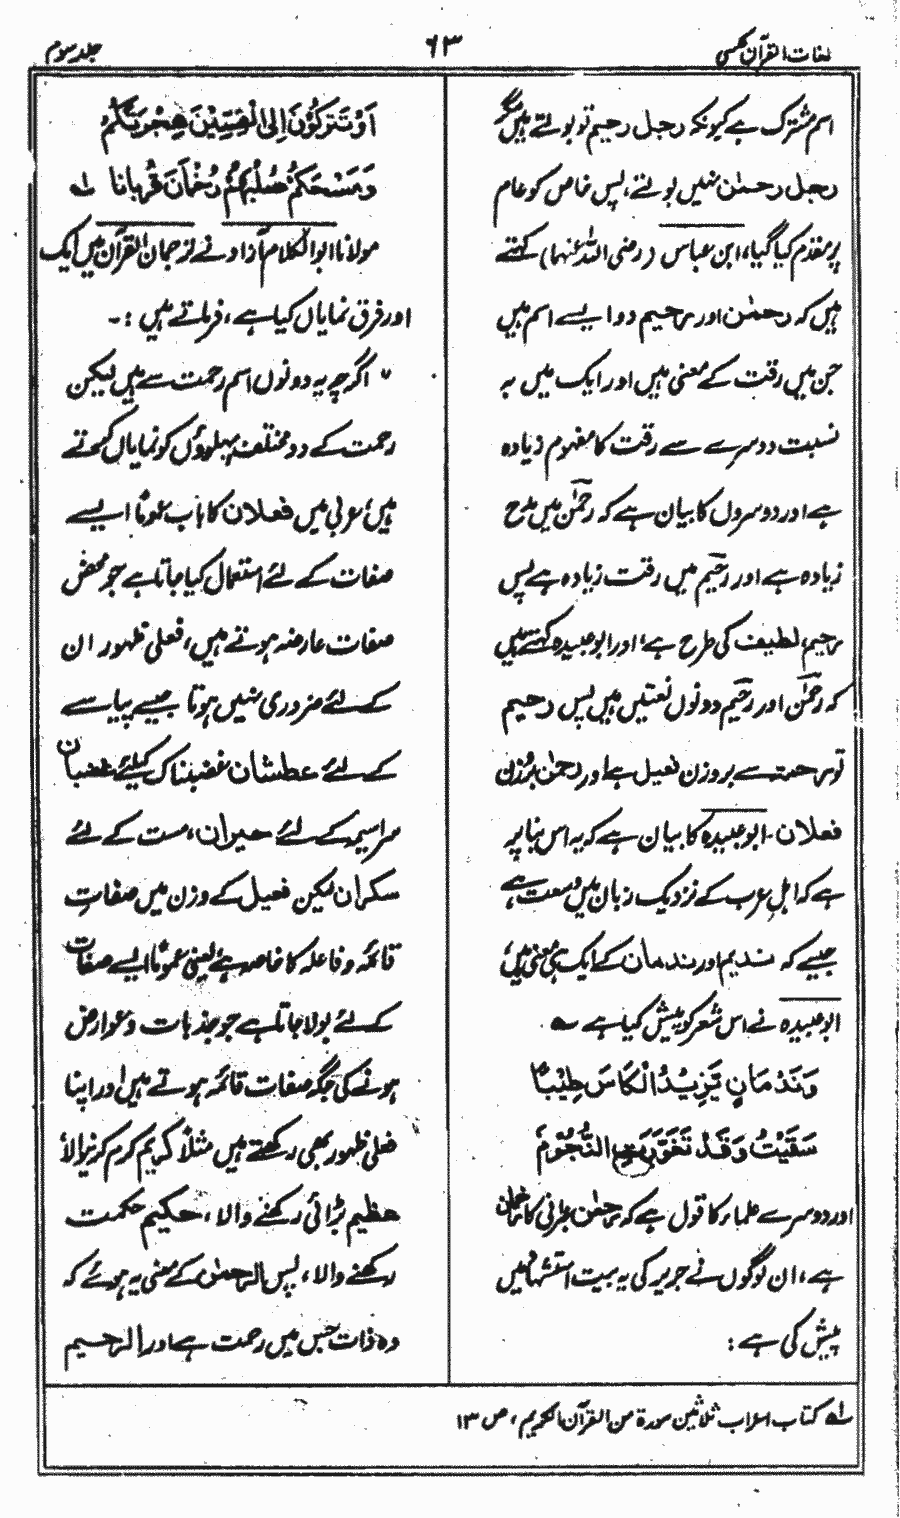 لغات القرآن
۶۳
جلد سوم
اسم مشترک ہے کیونکہ رجل رحیم تو بولتے ہیں
رجل رحمٰن نہیں بولتے، پس خاص کو عام
پر مقدم کیا گیا، ابن عباس (رضی اللہ عنہما) کہتے
ہیں کہ رحمٰن اور رحیم دو ایسے اسم ہیں
جن میں رقت کے معنی ہیں اور ایک میں بہ
نسبت دوسرے سے رقت کا مفہوم زیادہ
ہے اور دوسروں کا بیان ہے کہ رحمٰن میں مدح
زیادہ ہے اور رحیم میں رقت زیادہ ہے پس
رحیم لطیف کی طرح ہے، اور ابو عبیدہ کہتے ہیں
کہ رحمٰن اور رحیم دونوں نعتیں ہیں پس رحیم
تو رحمت سے بروزن فعیل ہے اور رحمٰن بروزن
فعلان۔ ابو عبیدہ کا بیان ہے کہ یہ اس بنا پر
ہے کہ اہل عرب کے نزدیک زبان میں وسعت ہے
جیسے کہ ندیم اور ندمان کے ایک ہی معنی ہیں،
ابو عبیدہ نے اس شعر کو پیش کیا ہے ؎
وَنَدْمَانٍ يَّزِيْدُ الْكَاسَ طِيْبًا
سَقَيْتُ وَقَدْ تَغَوَّرَتِ النُّجُوْمُ
اور دوسرے علماء کا قول ہے کہ رحمٰن عبرانی کا
ہے، ان لوگوں نے جریر کی یہ بیت استشہاد میں
پیش کی ہے :
اَوْ تَتْرُكُوْنَ اِلَى الْقِسِّيْنَ هِجْرَتَكُمْ
وَمَسْحَكُمْ صُلْبَهُمْ رُخْمَانَ قُرْبَانَا لہ
مولانا ابو الکلام آزاد نے ترجمان القرآن میں ایک
اور فرق نمایاں کیا ہے، فرماتے ہیں :۔
" اگرچہ یہ دونوں اسم رحمت سے ہیں لیکن
رحمت کے دو مختلف پہلوؤں کو نمایاں کرتے
ہیں، عربی میں فعلان کا باب عموماً ایسے
صفات کے لئے استعمال کیا جاتا ہے جو محض
صفات عارضہ ہوتے ہیں، فعلی ظہور ان
کے لئے ضروری نہیں ہوتا جیسے پیاسے
کے لئے عطشان غضبناک کیلئے غضبان
سراسیمہ کے لئے حیران، مست کے لئے
سکران لیکن فعیل کے وزن میں صفات
قائمہ و فاعلہ کا خاصہ ہے یعنی عموماً ایسے صفات
کے لئے بولا جاتا ہے جو جذبات و عوارض
ہونے کی جگہ صفات قائمہ ہوتے ہیں اور اپنا
فعلی ظہور بھی رکھتے ہیں مثلاً کریم کرم کرنیوالا
عظیم بڑائی رکھنے والا، حکیم حکمت
رکھنے والا، پس الرحمٰن کے معنی یہ ہوئے کہ
وہ ذات جس میں رحمت ہے اور الرحیم
لہ کتاب اعراب ثلاثین سورة من القرآن الکریم، ص ۱۳